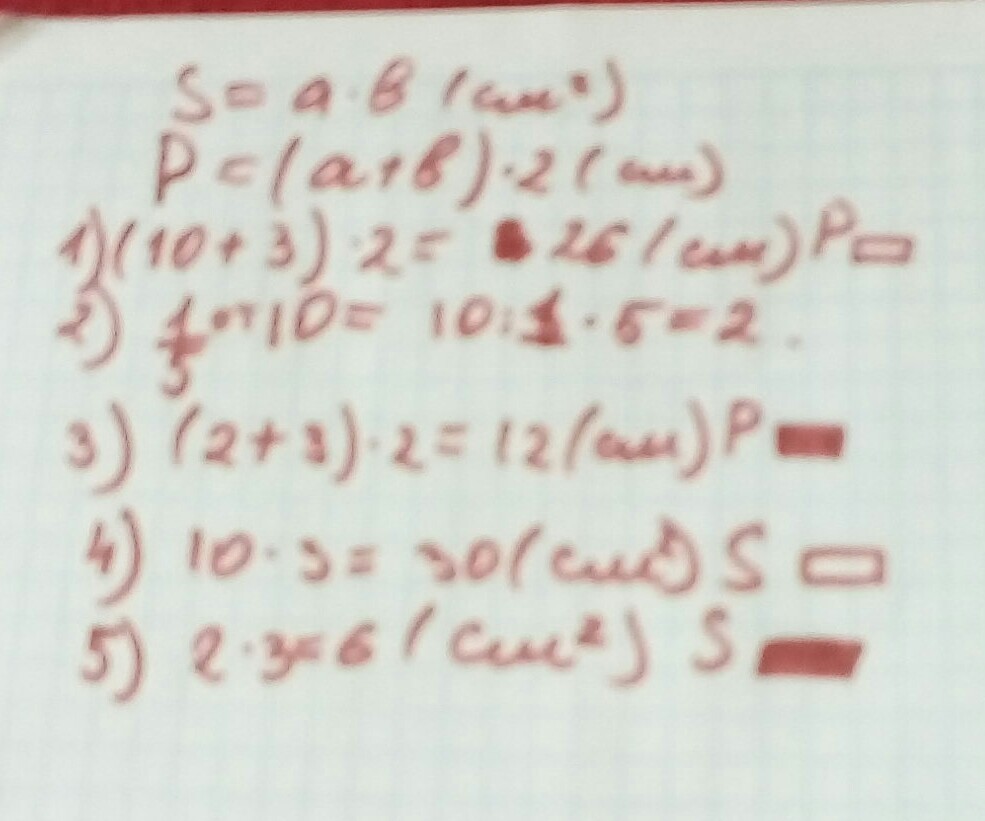 S = a · b (см²)
P = (a + b) · 2 (см)
1) (10 + 3) · 2 = 26 (см) P
2) 1/5 от 10 = 10 : 1 · 5 = 2.
3) (2 + 3) · 2 = 12 (см) P
4) 10 · 3 = 30 (см²) S
5) 2 · 3 = 6 (см²) S